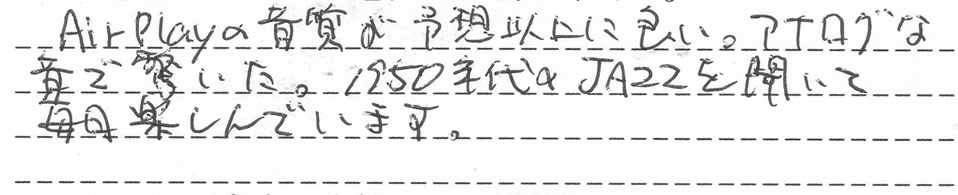 AirPlayの音質が予想以上に良い。アナログな
音で驚いた。1950年代のJAZZを聞いて
毎日楽しんでいます。